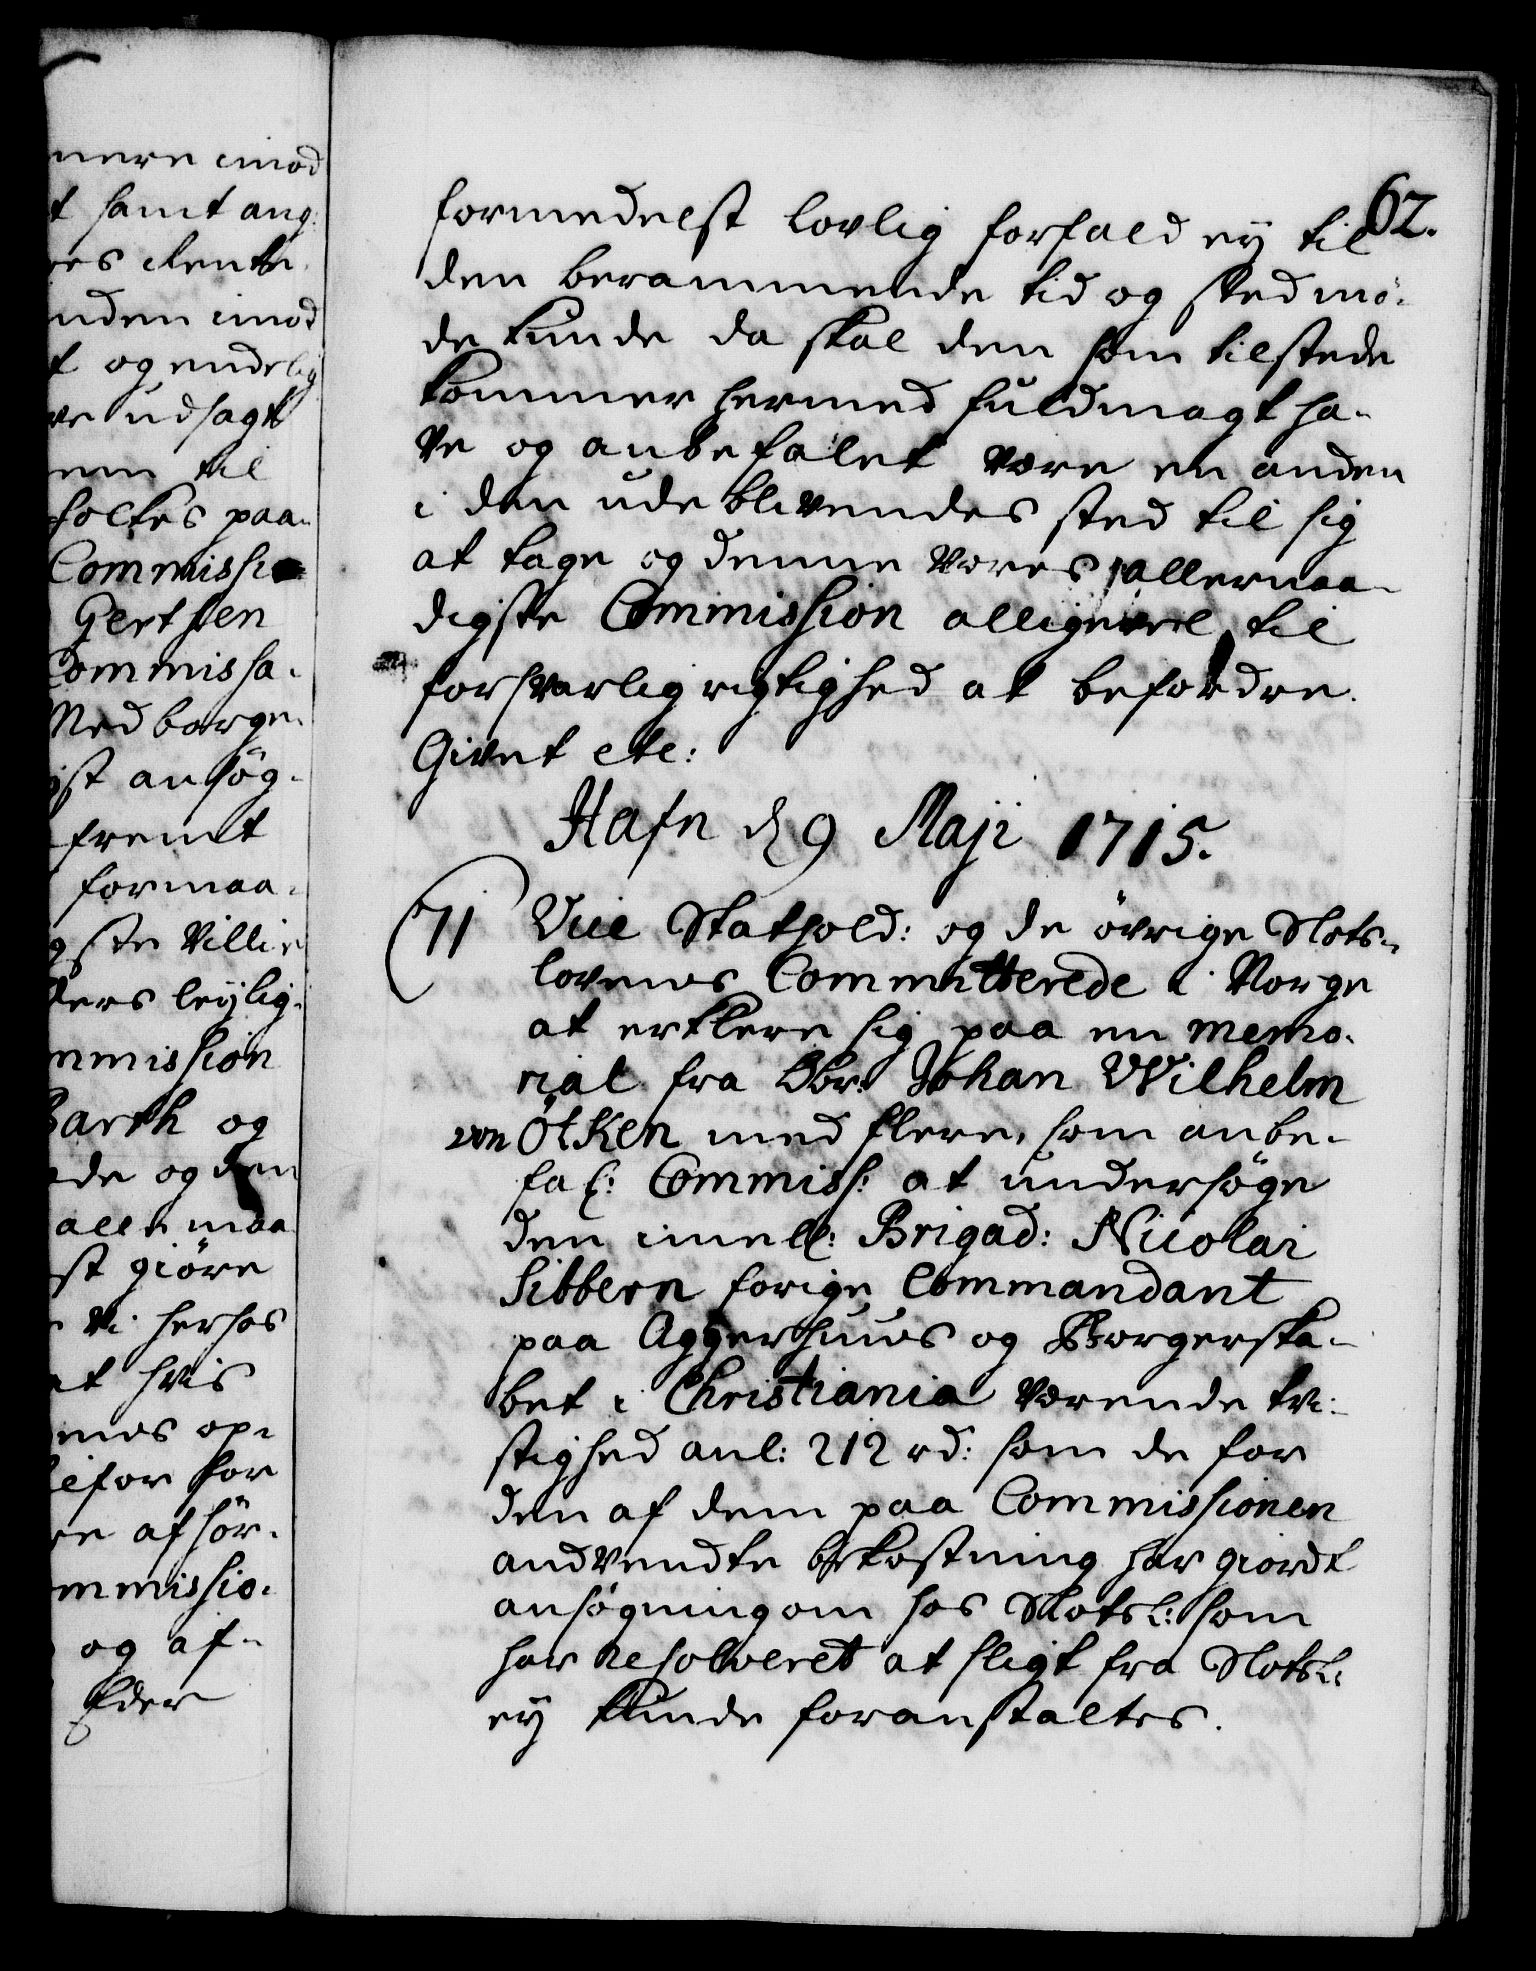 mere imod
t samt ang:
res Rente
nden imod
t og endelig
ve udsagt
nem til
holtes paa-
Commissio
Gertsen
Commissa-
Med borge-
gst ansøg-
fremt
formaa-
gste Villie
ders leylig-
mmission
Barth og
de og den
aller maa
st giøre
Vi herhos
at hvis
mes op-
befor for
re afhør-
mmissio-
og af-
Eder
62.
formedelst lovlig forfald ey til
den berammende tid og sted mö-
de kunde da skal den som tilstede
kommer hermed fuldmagt ha-
ve og anbefalet være en anden
i den udeblivendes sted til sig
at tage og denne Vores allernaa-
digste Commission alligevel til
forsvarlig rigtighed at befordre.
Givet etc:
Hafn d 9 Maji 1715.
71 Vice Stathold: og de övrige Slots-
lovens Committerede i Norge
at erklere sig paa en memo-
rial fra Obr: Johan Wilhelm
von Ötken med flere, som anbe-
fal: Commiss: at undersøge
den imell: Brigad: Nicolai
Sibbern forige Commandant
paa Aggerhuus og Borgerska-
bet i Christiania værende tvi-
stighed anl: 212 rd: som de for
den af dem paa Commissionen
andvendte bekostning har giordt
ansøgning om hos Slotsl: som
har resolveret at sligt fra Slotsl:
ey kunde foranstaltes.